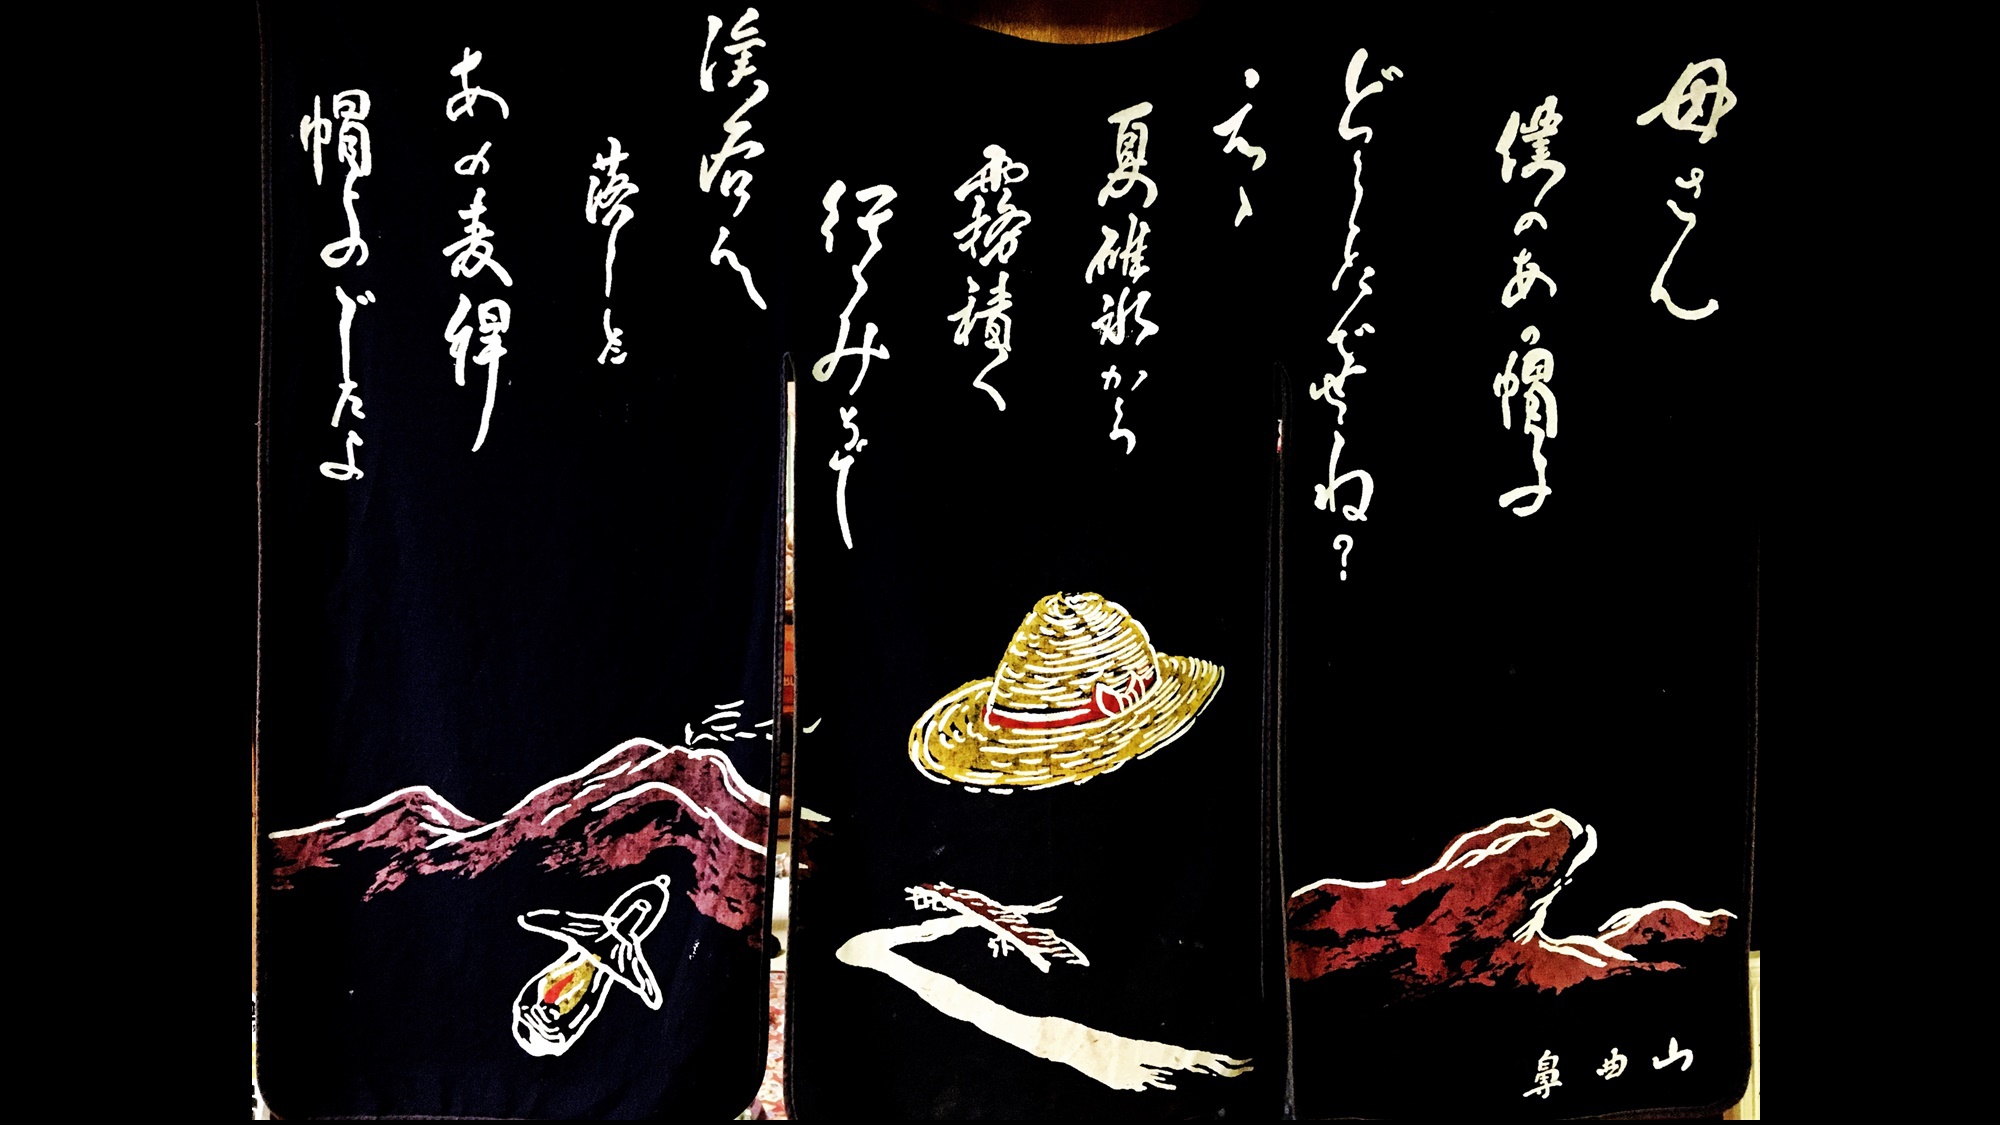 母さん
僕のあの帽子
どうしたでせうね?
ええ、
夏碓氷から
霧積へ
行くみちで
渓谷へ
落した
あの麦稈
帽子のですよ
鼻曲山